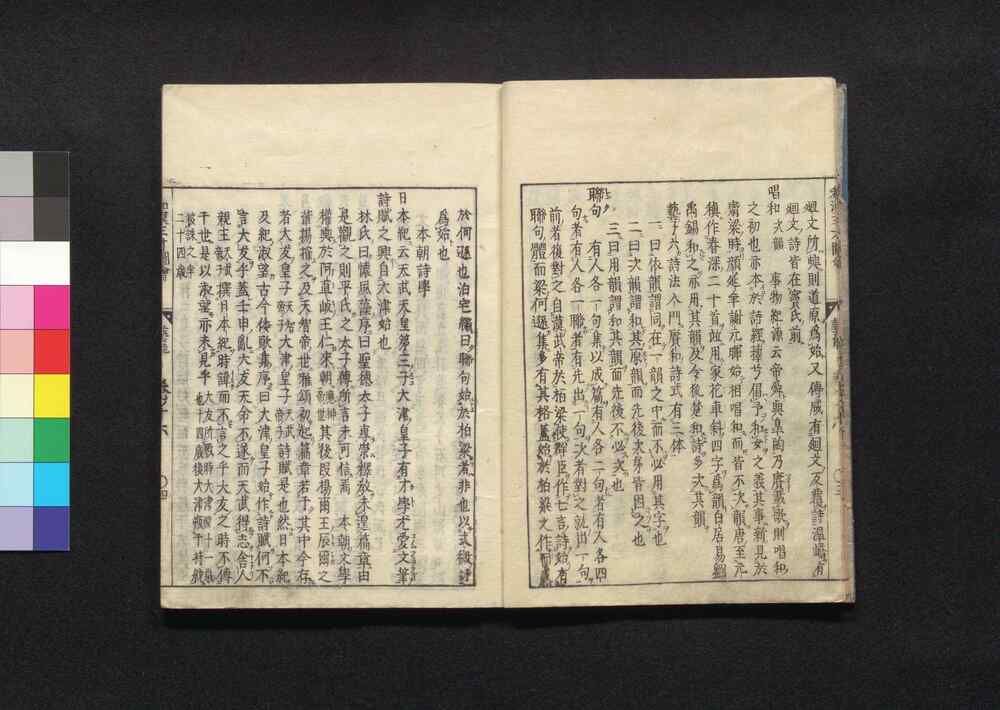 廻文所興則道原爲始又傅咸有廻文反覆詩温嶠有
廻文詩皆在竇氏前
唱和 次韻 事物紀源云帝舜與皐陶乃賡載歌則唱和
之初也亦本於詩經擇兮倡予和女之義其事新見於
齊梁時顔延年謝元暉始相唱和而皆不次韻唐至元
稹作春深二十首並用家花車斜四字爲韻白居易劉
禹錫和之亦用其韻及令狐楚和詩多次其韻
六 詩法入門賡和詩式有三体
一曰依韻謂同在一韻之中而不必用其字也
二曰次韻謂和其原韻而先後次第皆因之也
三曰用韻謂和其韻而先後不必次也
聯句 有人各一句集以成篇有人各二句者有人各四
句者有人各一聯者有先出一句次者對之就出一句
前者復對之自漢武帝於柏梁使群臣作七言詩始有
聯句體而梁何遜集多有其格蓋始於柏梁文作而
於何遜也泊宅編曰聯句始於柏梁者非也以式微詩
爲始也
本朝詩學
日本紀云天武天皇第三子大津皇子有才學尤愛文筆
詩賦之興自大津始也
林氏曰懐風藻序曰聖德太子專崇釋敎未遑篇章由
是觀之則平氏之太子傳所言未可信焉 本朝文學
權輿於阿直岐王仁來朝應神帝世其後段楊爾王辰爾之
者大友皇子天智帝子大津皇子天武帝子詩賦是也然日本紀
及紀淑望古今倭歌集序曰大津皇子始作詩賦何不
言大友乎蓋壬申亂大友天命不遂而天武得志舎人
親王撰日本紀時諱而不言之乎大友之時不傳
干世是以淑望亦未見乎
二十四歳